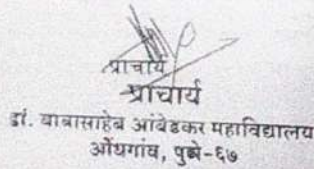 प्राचार्य
प्राचार्य
डॉ. बाबासाहेब आंबेडकर महाविद्यालय
औंधगांव, पुणे-६७